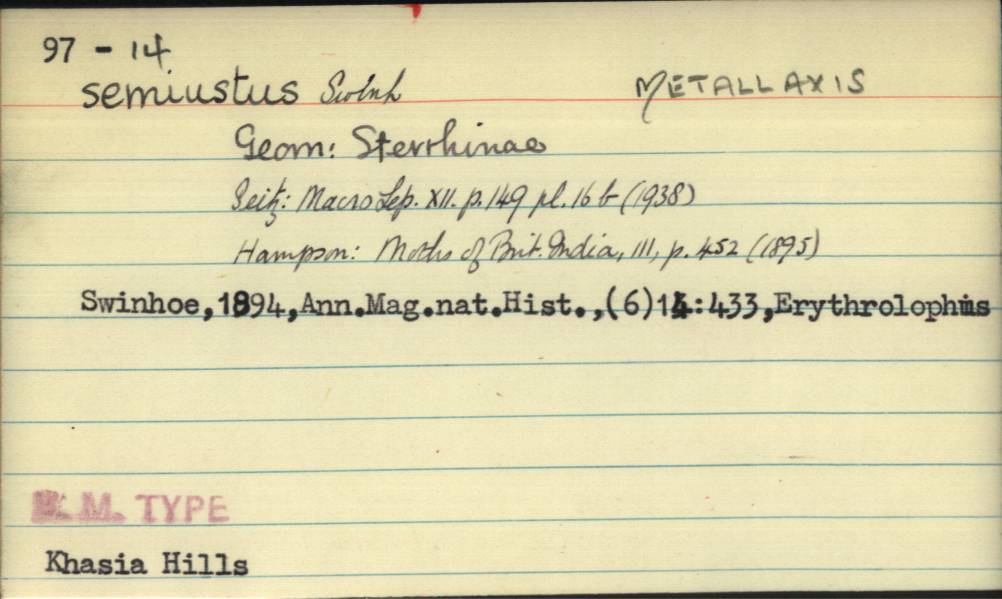 97 - 14
semiustus Swinh METALLAXIS
Geom: Sterrhinae
Seitz: Macro Lep. XII. p. 149 pl. 16 b (1938)
Hampson: Moths of Brit. India, III, p. 452 (1895)
Swinhoe,1894,Ann.Mag.nat.Hist.,(6)14:433,Erythrolophus
B. M. TYPE
Khasia Hills